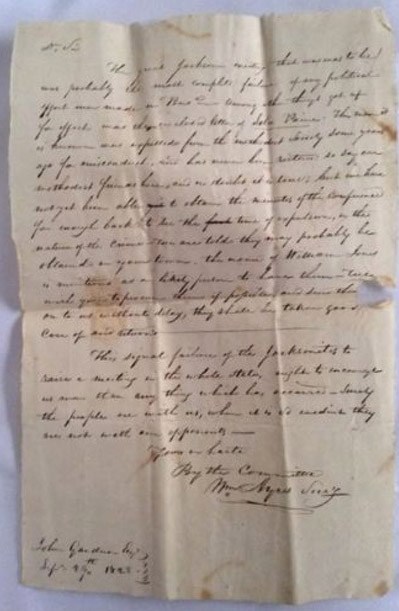 Dr Sir
The great Jackson meeting that was to be
was probably the most complete failure of any political
effort ever made in Among the things got up
for effect was the letter of John
is was expelled from the methodist Society some years
ago for misconduct, and has never been so say our
methodist friends here, and no doubt is true; but we have
not yet been able to obtain the minutes of the Conference
far enough back to see the time of expulsion, or the
nature of the Crime we are told they may probably be
obtained in your town. the name of William Jones
is mentioned as a likely person to have them
you to procure them if possible, and send them
on to us without delay, they shall be taken good
care of and returned
This signal failure of the Jacksonites to
raise a meeting in the whole State, ought to encourage
us more than any thing which has occurred surely
the people are with us, when it is so evident they
are not with our opponents —
Yours in haste
By the Committee
Wm Ayres Secy
John Gardner Esq
Sep. 1828